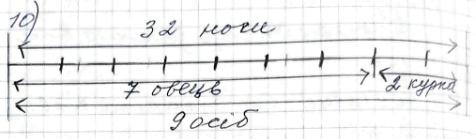 10)
32 ноги
7 овець
2 курка
9 осіб